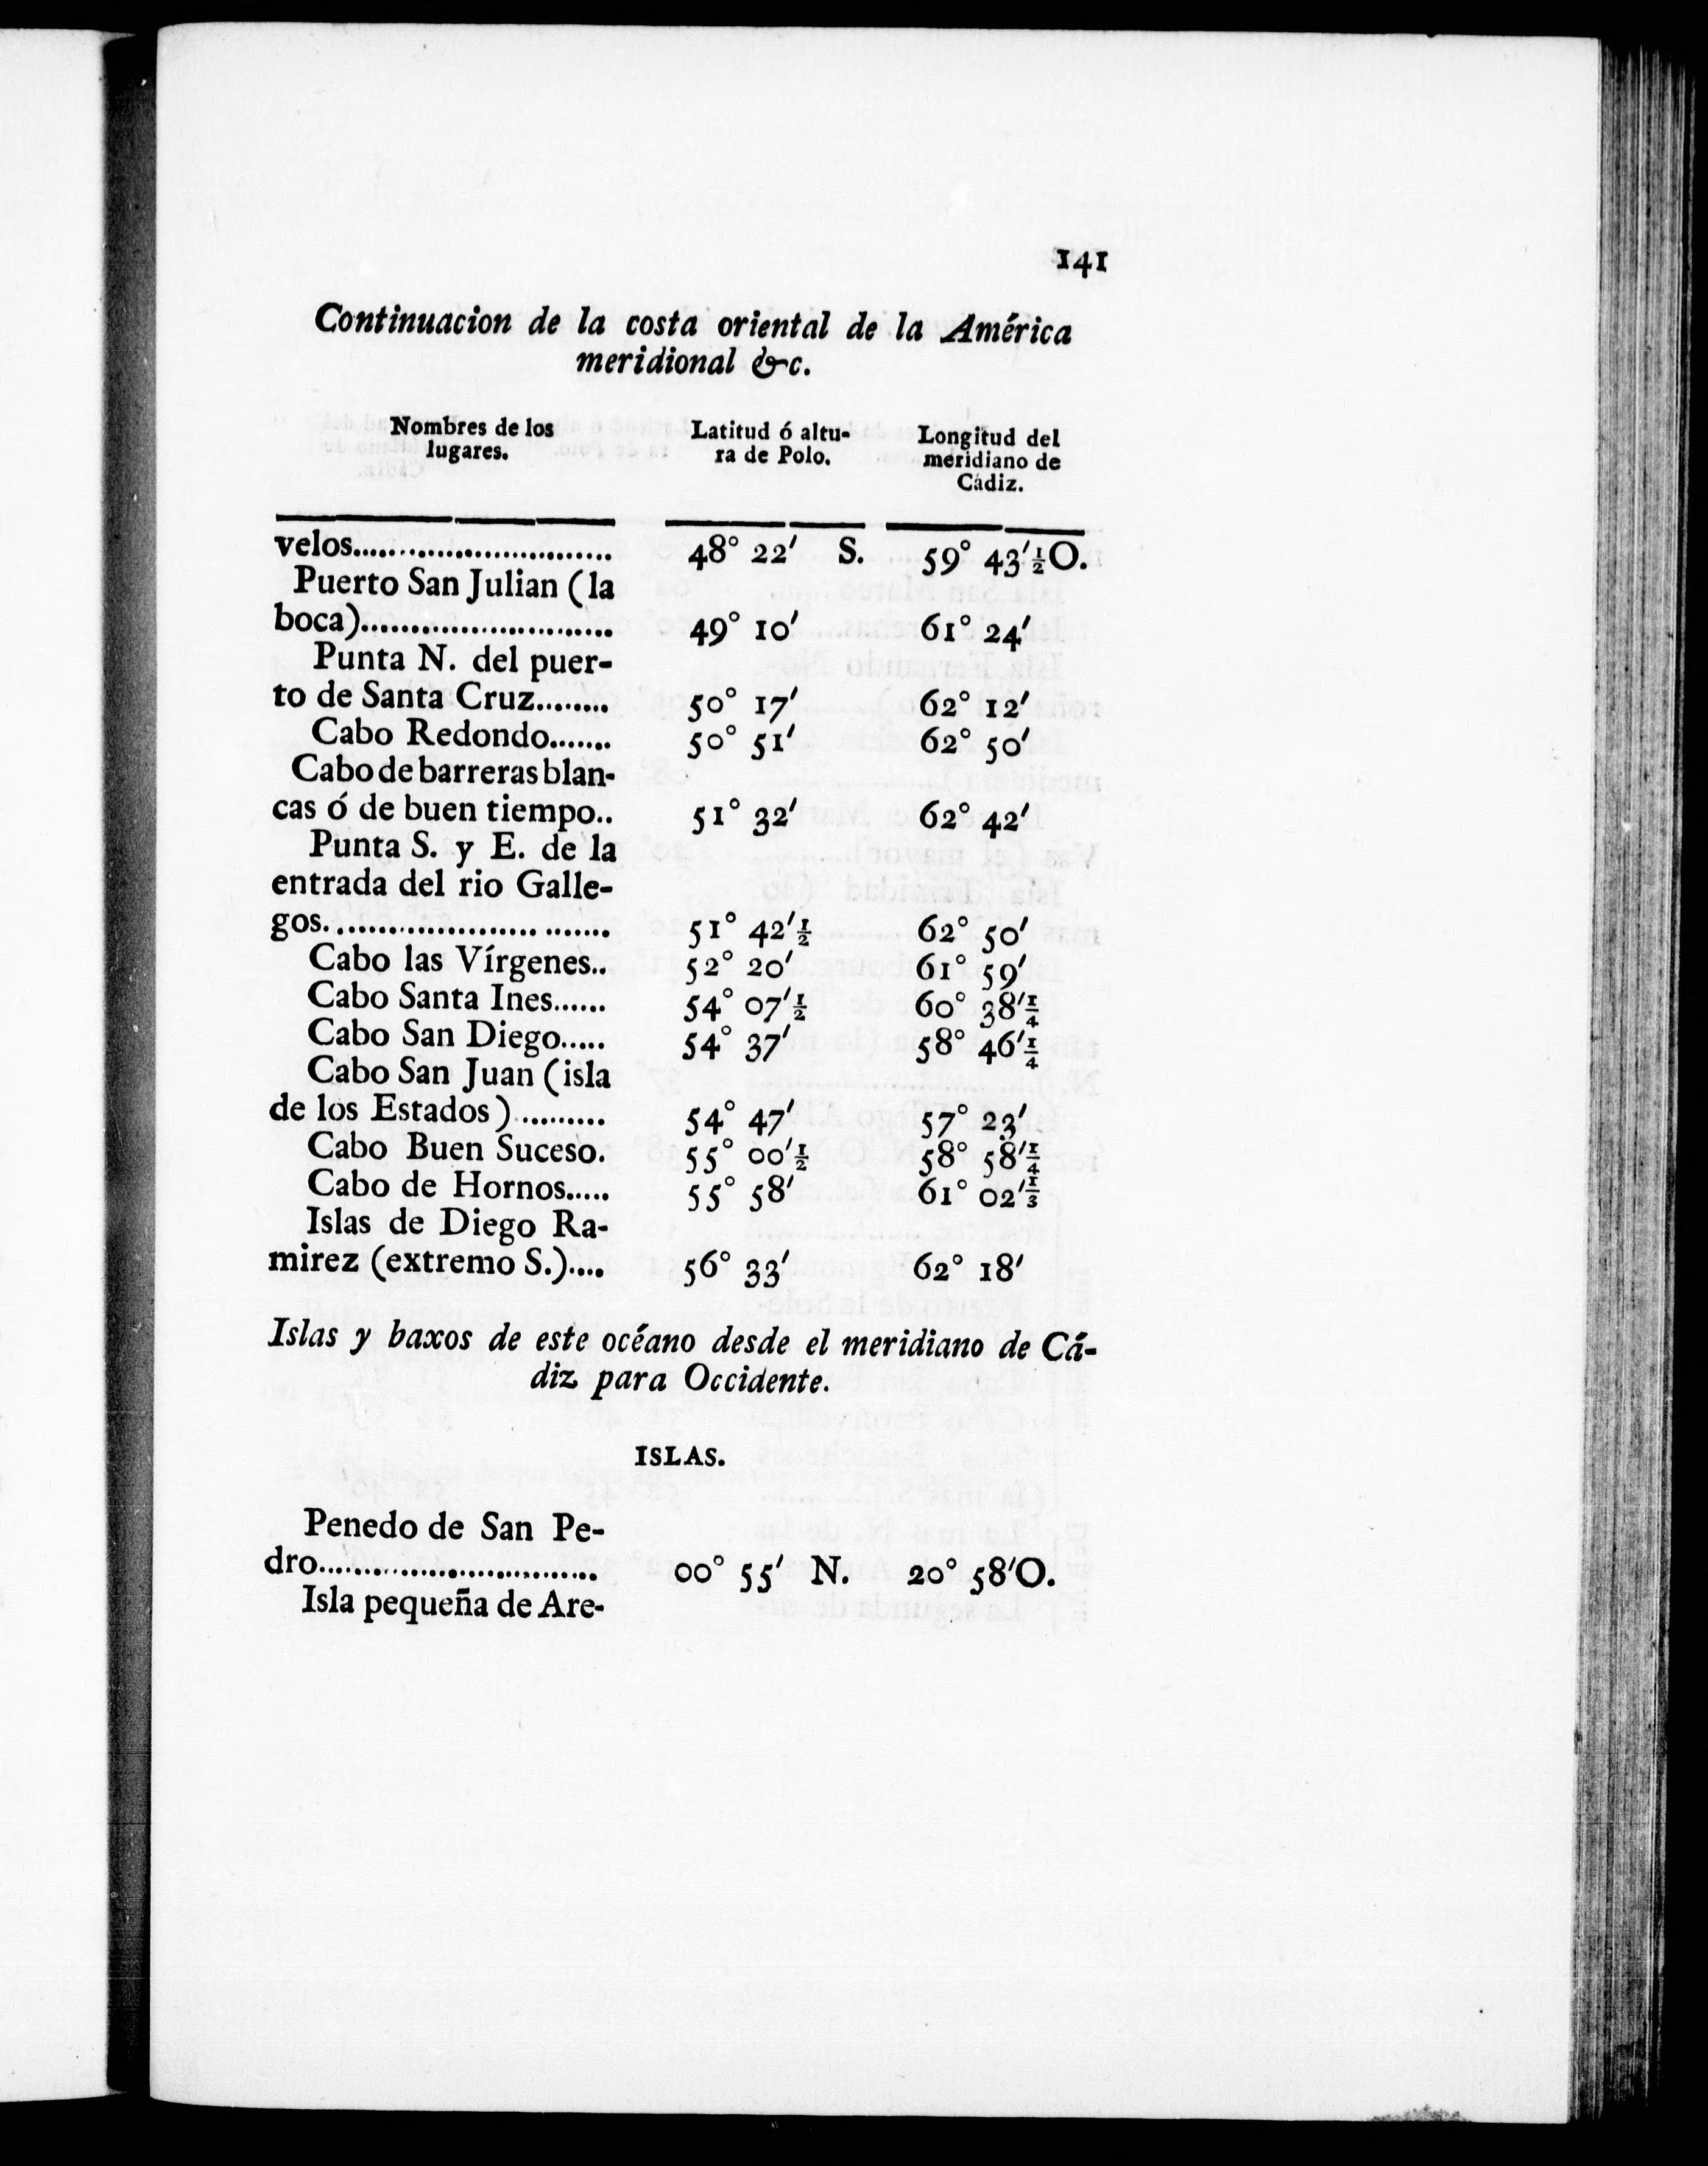 141
Continuacion de la costa oriental de la América
meridional &c.
Nombres de los lugares.
Latitud ó altu-
ra de Polo.
Longitud del
meridiano de
Cádiz.
velos............................ 48° 22' S. 59° 43'½O.
Puerto San Julian (la
boca).......................... 49° 10' 61° 24'
Punta N. del puer-
to de Santa Cruz........ 50° 17' 62° 12'
Cabo Redondo....... 50° 51' 62° 50'
Cabo de barreras blan-
cas ó de buen tiempo.. 51° 32' 62° 42'
Punta S. y E. de la
entrada del rio Galle-
gos............................. 51° 42'½ 62° 50'
Cabo las Vírgenes.. 52° 20' 61° 59'
Cabo Santa Ines...... 54° 07'½ 60° 38'¼
Cabo San Diego..... 54° 37' 58° 46'¼
Cabo San Juan (isla
de los Estados).......... 54° 47' 57° 23'
Cabo Buen Suceso. 55° 00'½ 58° 58'¼
Cabo de Hornos..... 55° 58' 61° 02'⅓
Islas de Diego Ra-
mirez (extremo S.).... 56° 33' 62° 18'
Islas y baxos de este océano desde el meridiano de Cá-
diz para Occidente.
ISLAS.
Penedo de San Pe-
dro.............................. 00° 55' N. 20° 58'O.
Isla pequeña de Are-